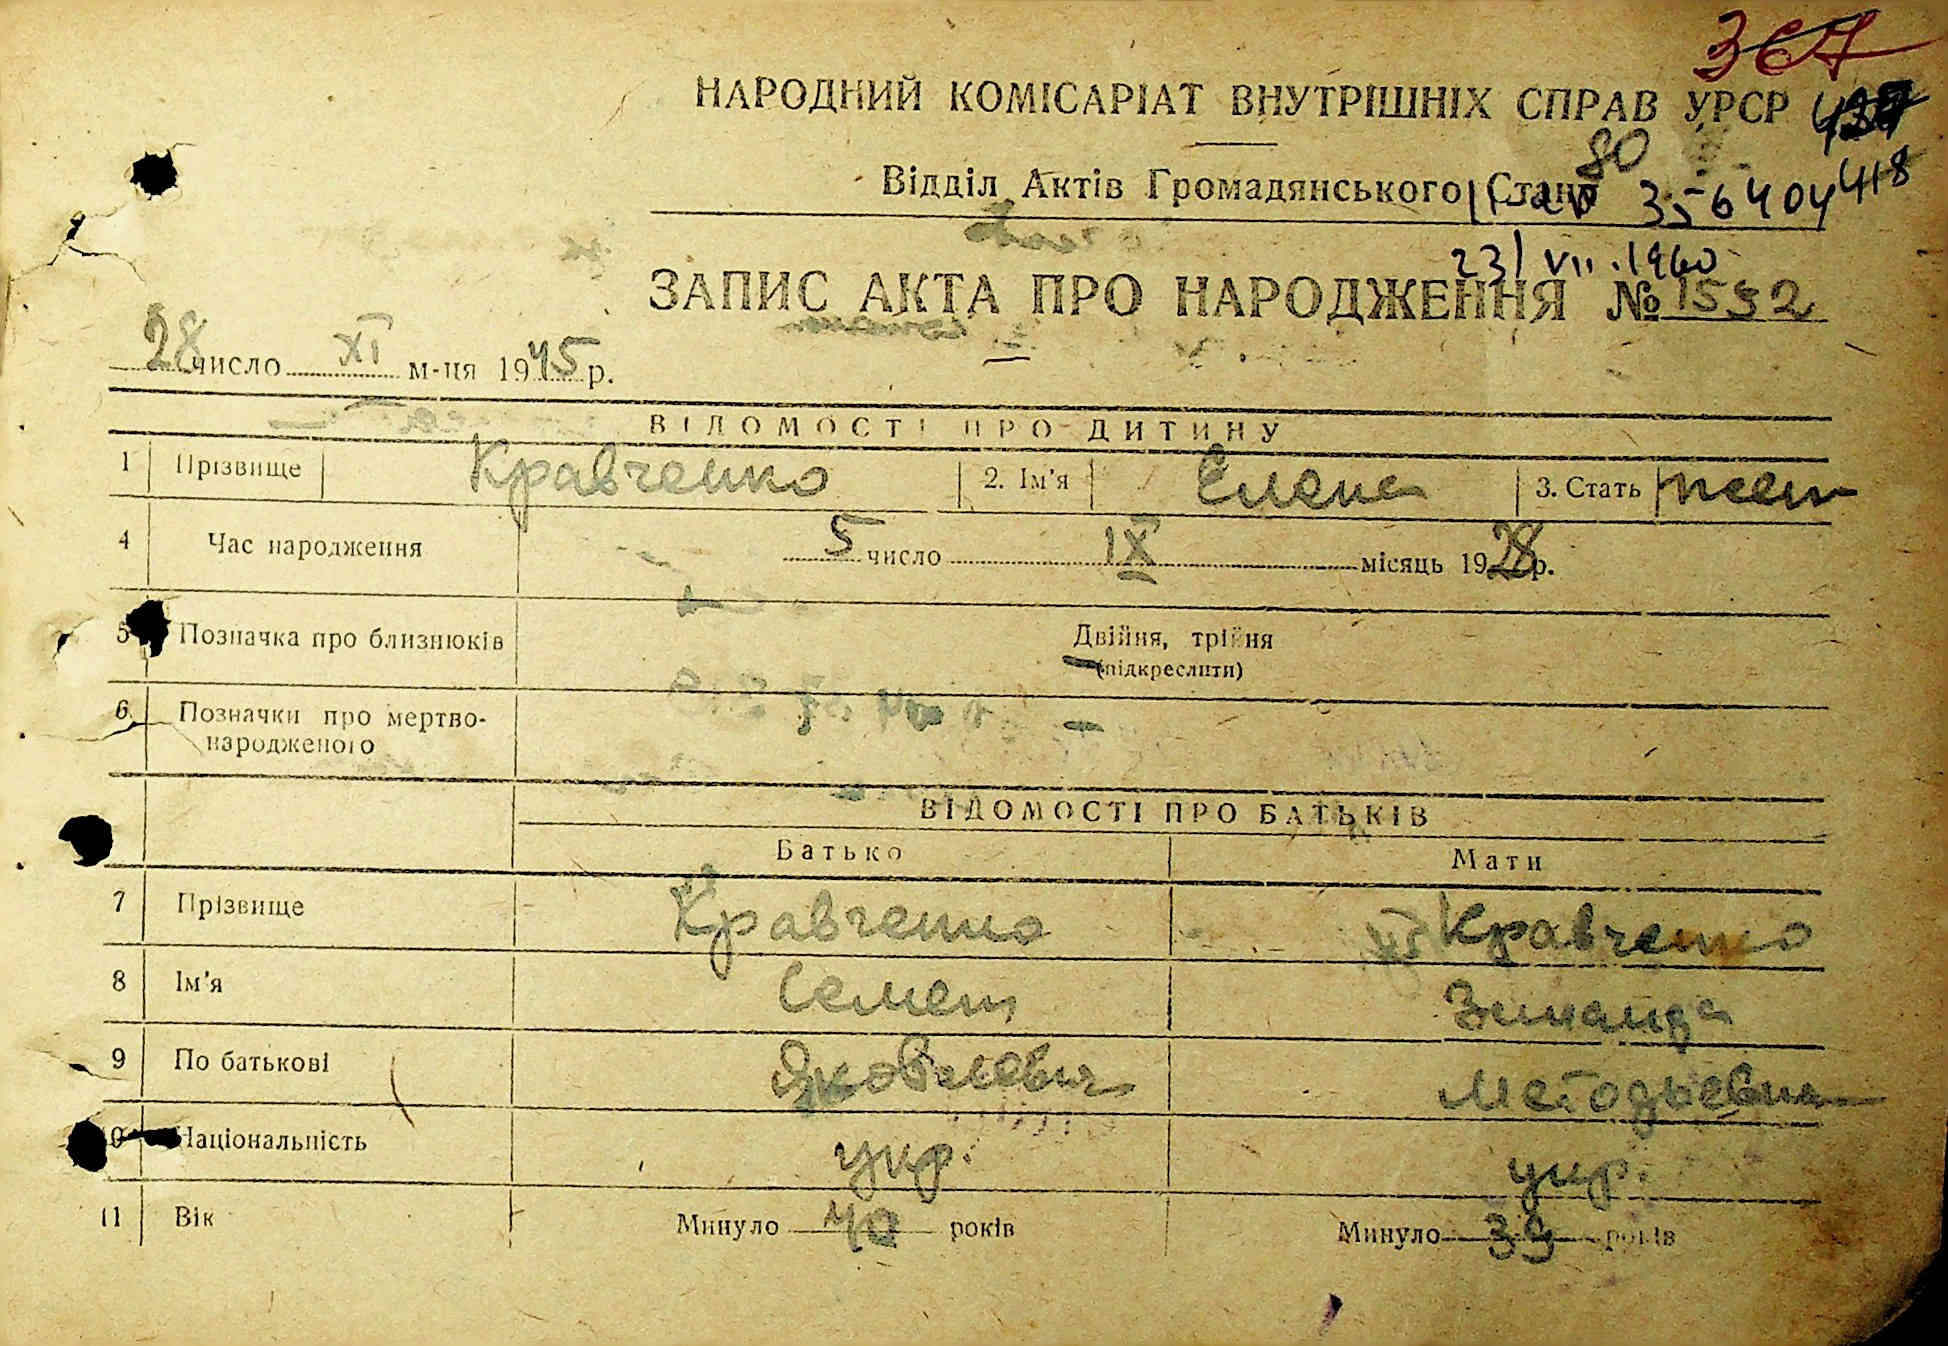 НАРОДНИЙ КОМІСАРІАТ ВНУТРІШНІХ СПРАВ УРСР
80
Відділ Актів Громадянського Стану
356404 418
23/VII.1960
ЗАПИС АКТА ПРО НАРОДЖЕННЯ № 1592
28 число XI м-ця 1945 р.
ВІДОМОСТІ ПРО ДИТИНУ
1 Прізвище Кравченко 2. Ім'я Елена 3. Стать жен
4 Час народження 5 число IX місяць 1928 р.
5 Позначка про близнюків Двійня, трійня
(підкреслити)
6 Позначки про мертво-
народженого —
ВІДОМОСТІ ПРО БАТЬКІВ
Батько Мати
7 Прізвище Кравченко Кравченко
8 Ім'я Семен Зинаида
9 По батькові Яковлевич Методьевна
10 Національність укр. укр.
11 Вік Минуло 40 років Минуло 39 років